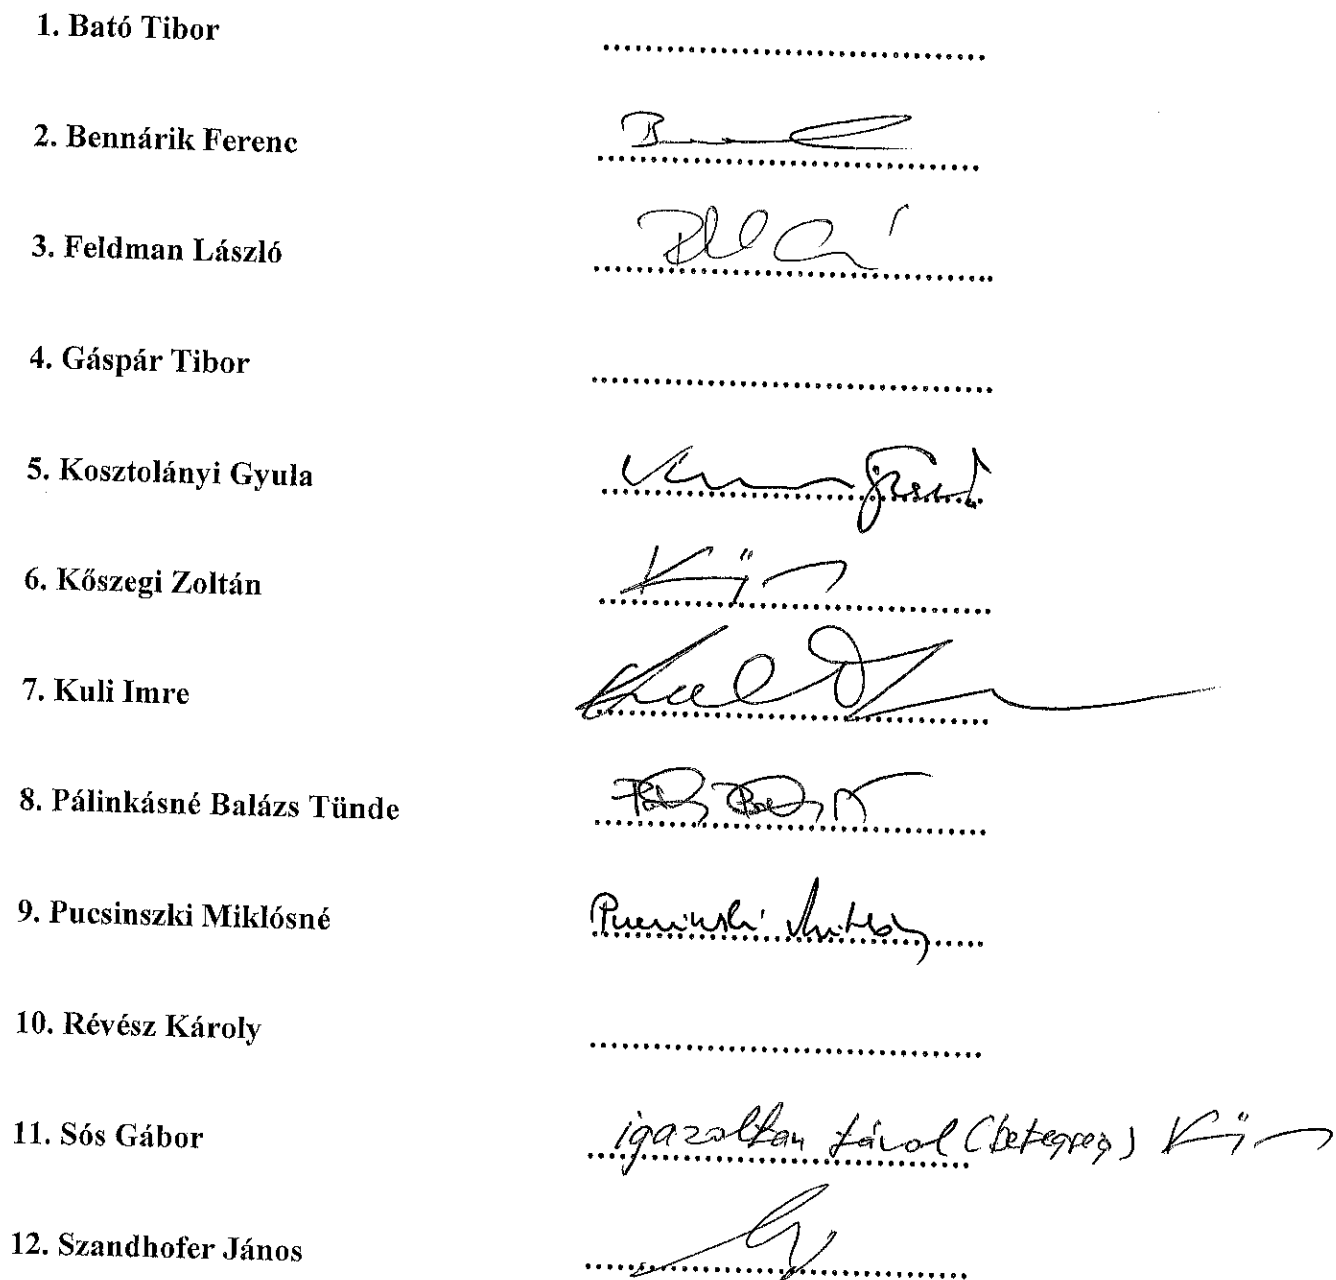 1. Bató Tibor
2. Bennárik Ferenc
3. Feldman László
4. Gáspár Tibor
5. Kosztolányi Gyula
6. Kőszegi Zoltán
7. Kuli Imre
8. Pálinkásné Balázs Tünde
9. Pucsinszki Miklósné
10. Révész Károly
11. Sós Gábor igazoltan távol (betegség)
12. Szandhofer János